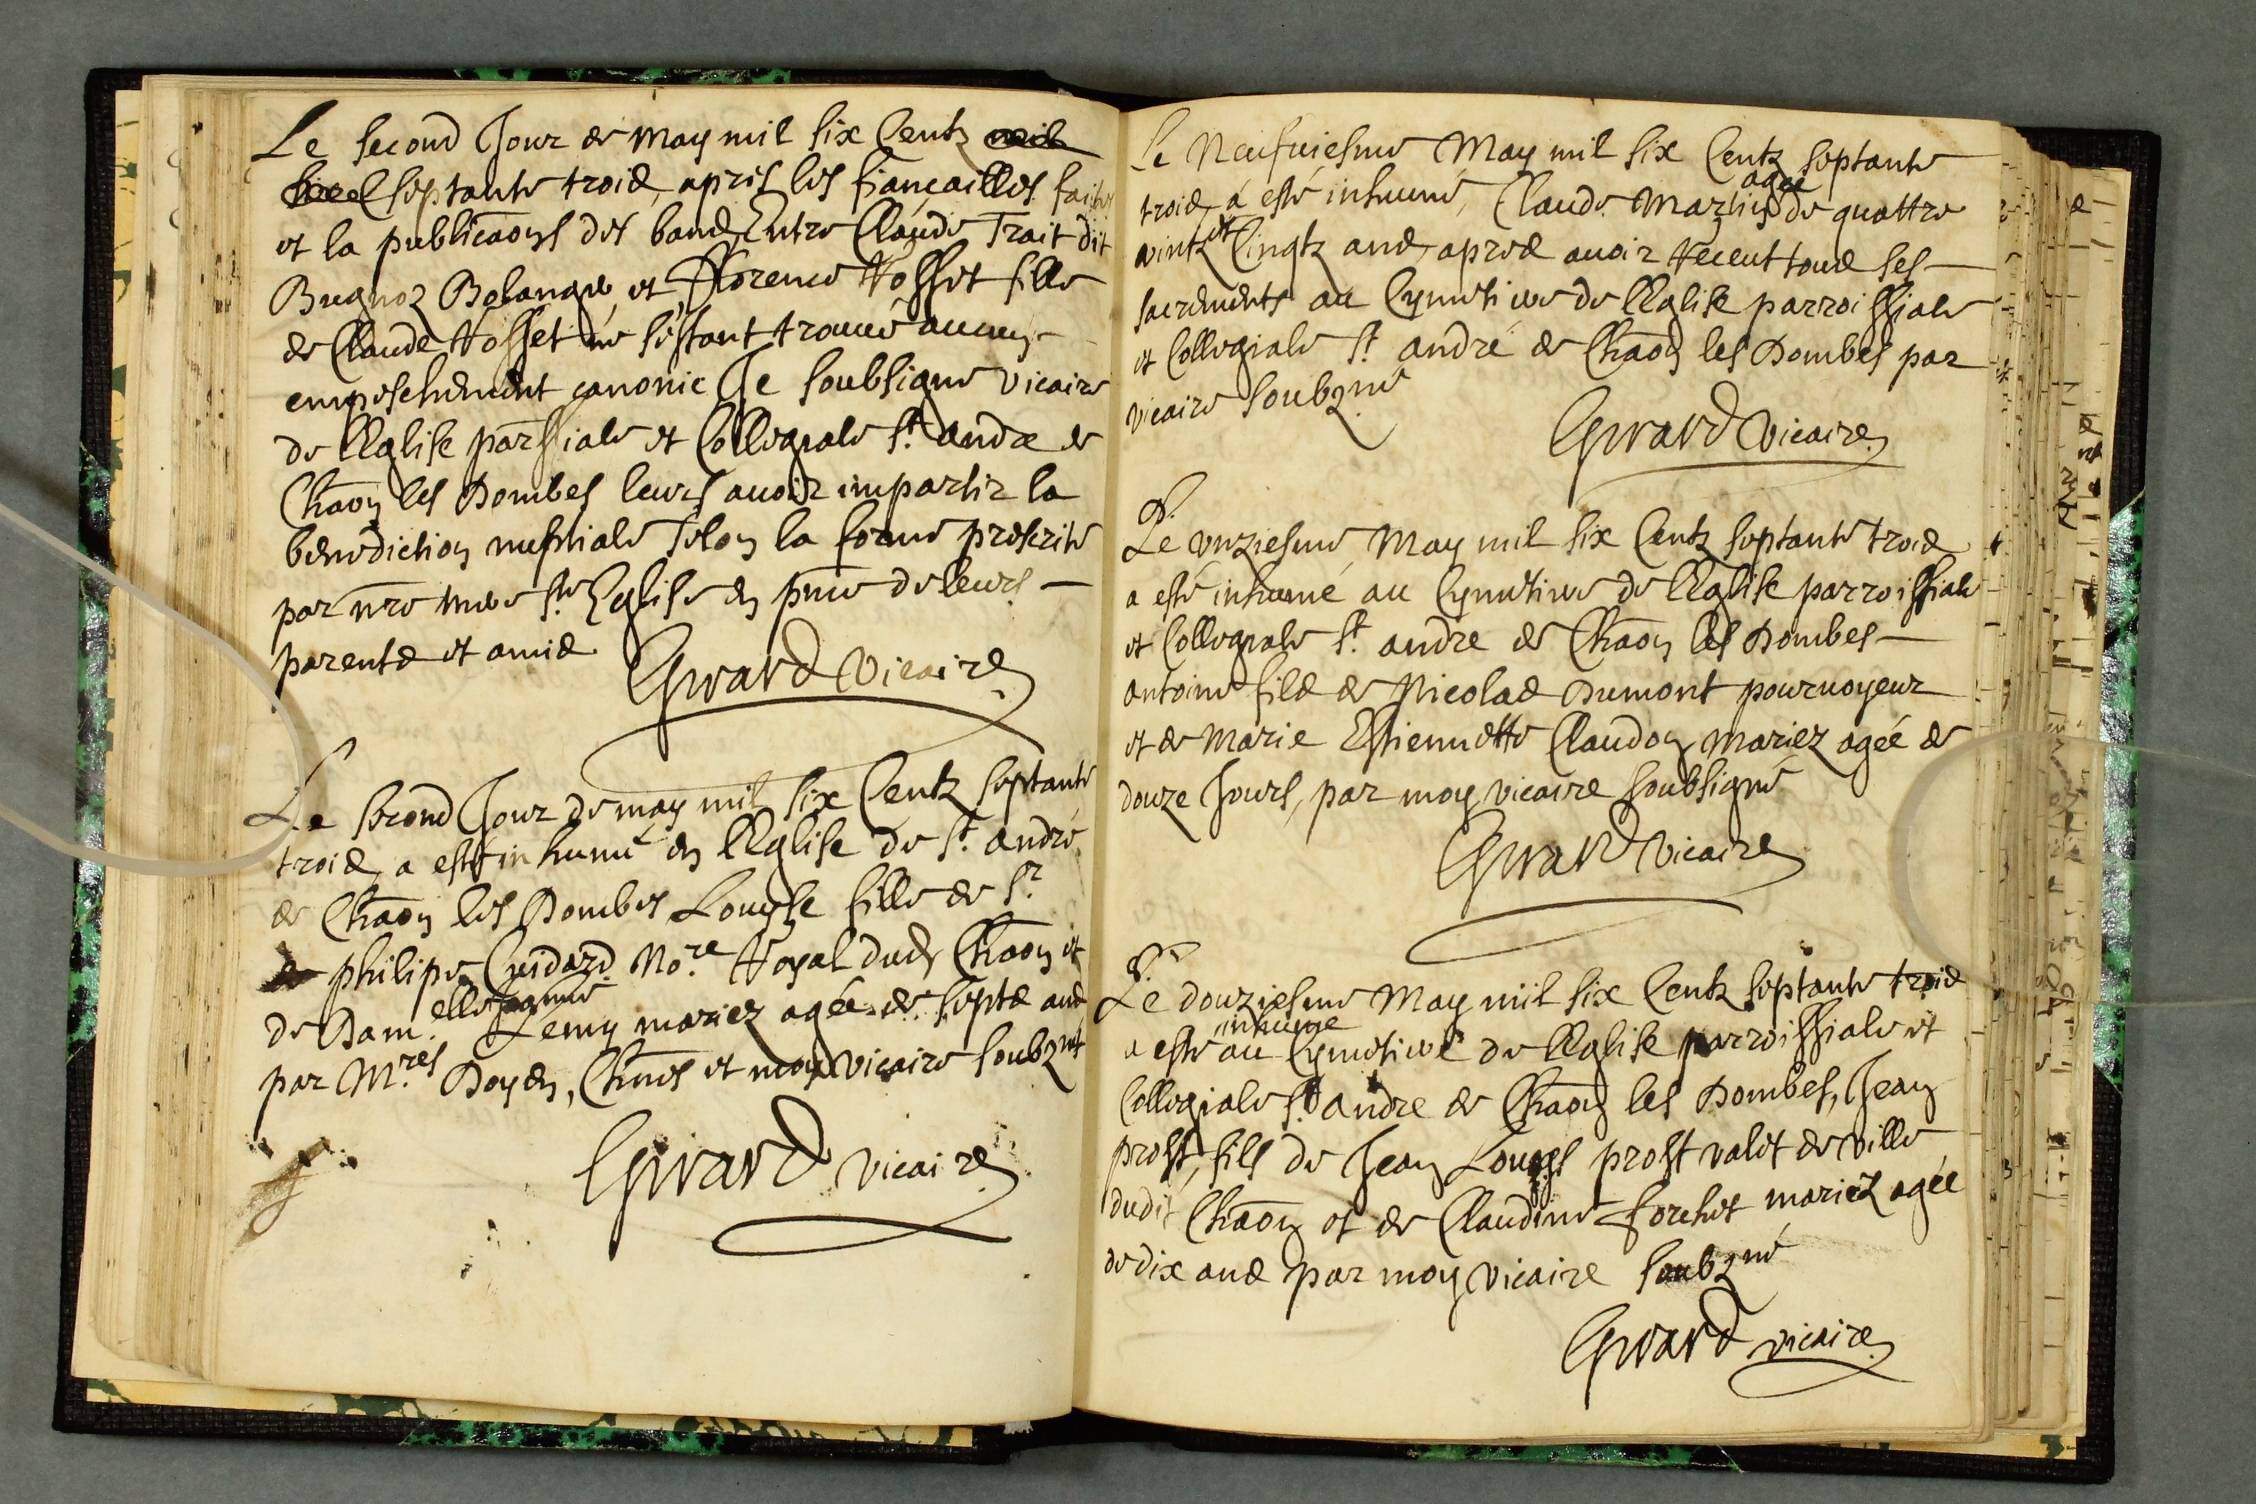 Le second Jour de may mil six Centz
septante trois, apres les fiançailles faites
et la publicãons des bans Entre Claude Trait dit
Bugnoz Bolangé, et Florence Rosset fille
de Claude Rosset ne s'estant trouvé aucun
empeschement canonic Je soubsigne vicaire
de l'Eglise par͞ssiale et Collegiale St. andre de
Cha͞on les Dombes leurs avoir impartir la
benediction nuptiale selon la forme prescrite
par n͞re mere ste Eglise en p͞nce de leurs
parents et amis
Girard vicaire
Le second Jour de may mil six Centz septante
trois, a esté inhumé en l'Eglise de St. andré
de Cha͞on les Dombes Louyse fille de Sr
philipe Guidard No.re Royal dud Cha͞on et
de Dam.elle Lemy mariez agée de septs ans
par M.res Doyen, Ch͞nes et moy vicaire soubzné
Girard vicaire
Le Neufviesme May mil six Centz septante
trois, a esté inhumé, Claude Martin agée de quattre
vintz et Cinqtz ans, apres avoir receut tous ses
sacrements au Cymetiere de l'Eglise parroissiale
et Collegiale St andré de Cha͞on les Dombes par
vicaire soubzné
Girard vicaire
Le unziesme May mil six Centz septante trois
a esté inhumé au Cymetiere de l'Eglise parroissiale
et Collegiale St. andre de Cha͞on les Dombes
antoine fils de Nicolas Dumont pourvoyeur
et de Marie Estiennette Claudon mariez agée de
douze Jours, par moy vicaire soubsigné
Girard vicaire
Le douziesme May mil six Centz septante trois
a esté inhume au Cymetiere de l'Eglise parroissiale et
Collegiale St andre de Cha͞on les Dombes, Jean
prost, fils de Jean Louys prost valet de ville
dudit Cha͞on et de Claudine forest mariez agée
de dix ans par moy vicaire soubzné
Girard vicaire